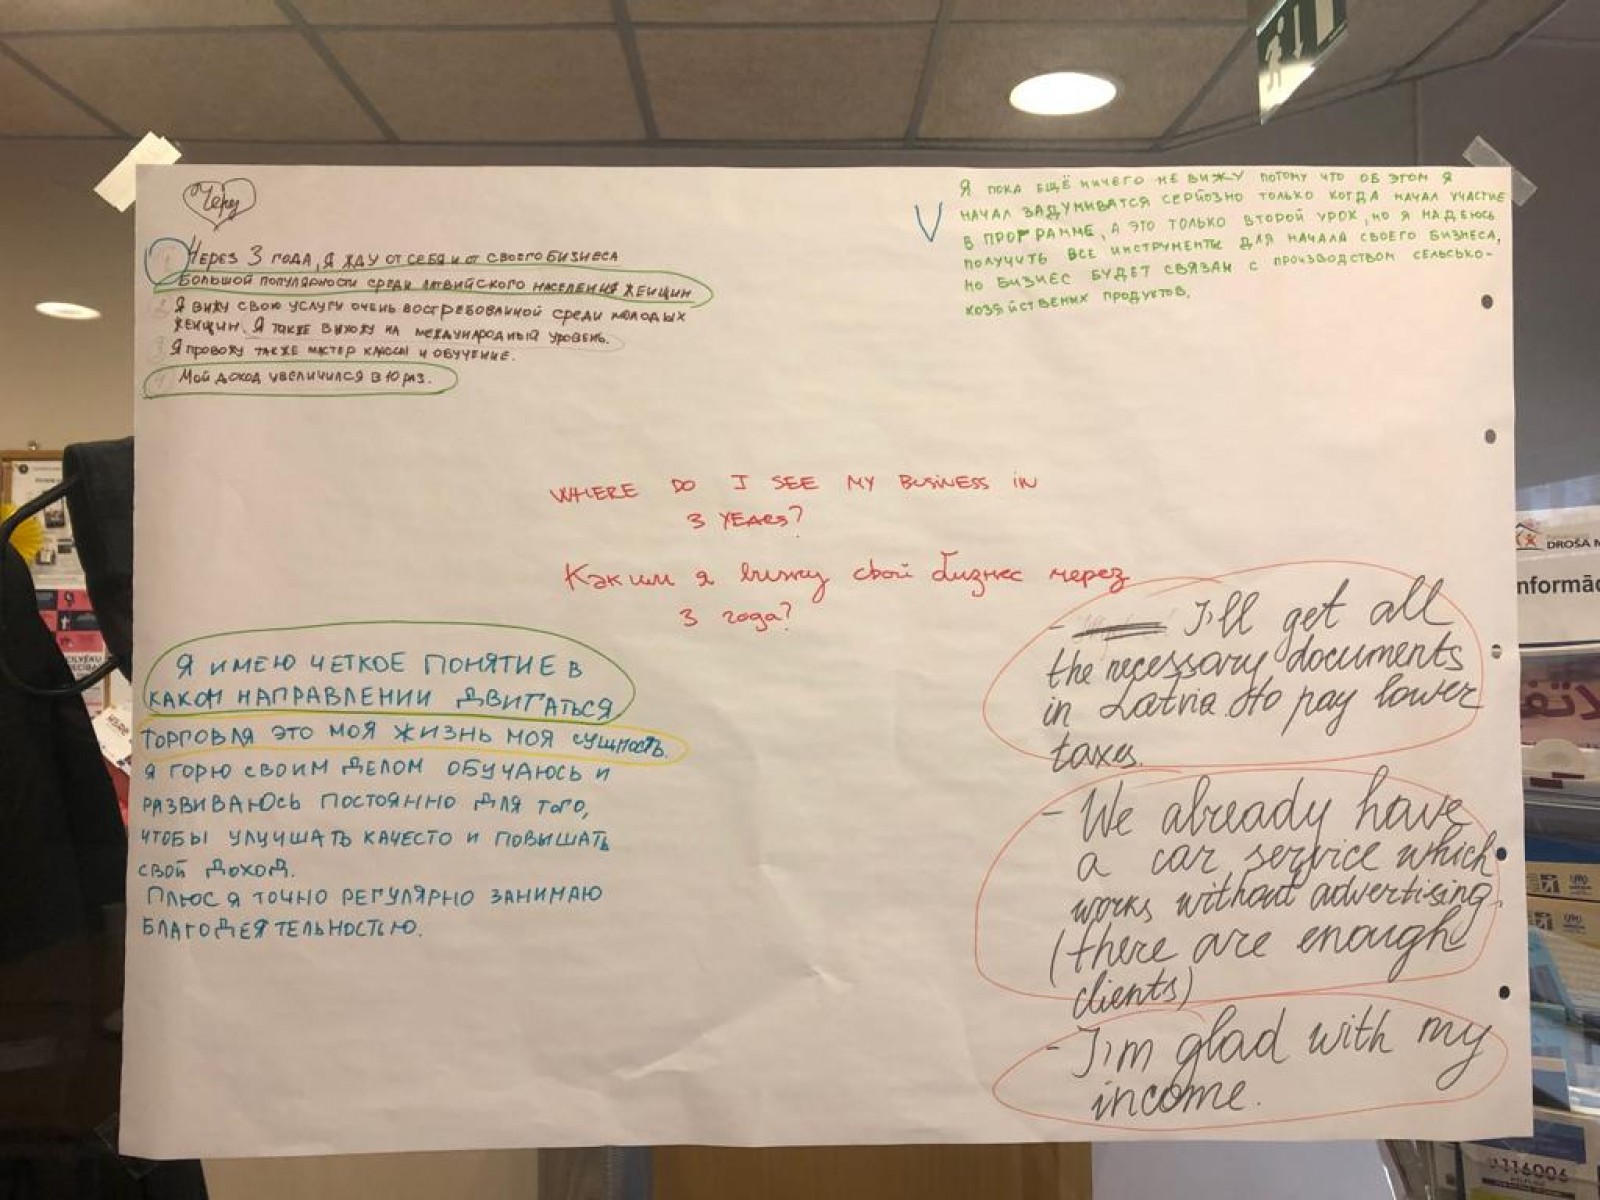 Через 3 года, я жду от себя и от своего бизнеса
большой популярности среди латвийского населения женщин
2 Я вижу свою услугу очень востребованной среди молодых
женщин. Я также выхожу на международный уровень.
3 Я провожу также мастер классы и обучение.
4 Мой доход увеличился в 10 раз.
Я пока ещё ничего не вижу потому что об этом я
начал задумиватся серйозно только когда начал участие
в программе, а это только второй урок, но я надеюсь
получить все инструменты для начала своего бизнеса,
но бизнес будет связан с производством сельсько-
козяйствених продуктов.
WHERE DO I SEE MY BUSINESS IN
3 YEARS?
Каким я вижу свой бизнес через
3 года?
Я имею четкое понятие в
каком направлении двигаться
торговля это моя жизнь моя сущность.
я горю своим делом обучаюсь и
развиваюсь постоянно для того,
чтобы улучшать качесто и повышать
свой доход.
Плюс я точно регулярно занимаю
благодеятельностью.
- I'll get all
the necessary documents
in Latvia to pay lower
taxes.
- We already have
a car service which
works without advertising.
(there are enough
clients)
- I'm glad with my
income.
DROŠA
nformāc
116006